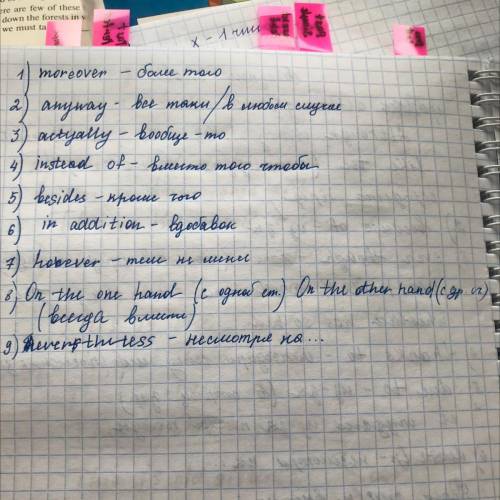 ere are few of these
down the forests in y
we must ta
x - 1 
1) moreover - более того
2) anyway - все таки / в любом случае
3) actyally - вообще-то
4) instead of - вместо того чтобы
5) besides - кроме того
6) in addition - вдобавок
7) however - тем не менее
8) On the one hand (с одной ст.) On the other hand (с др. ст)
(всегда вместе)
9) nevertheless - несмотря на...